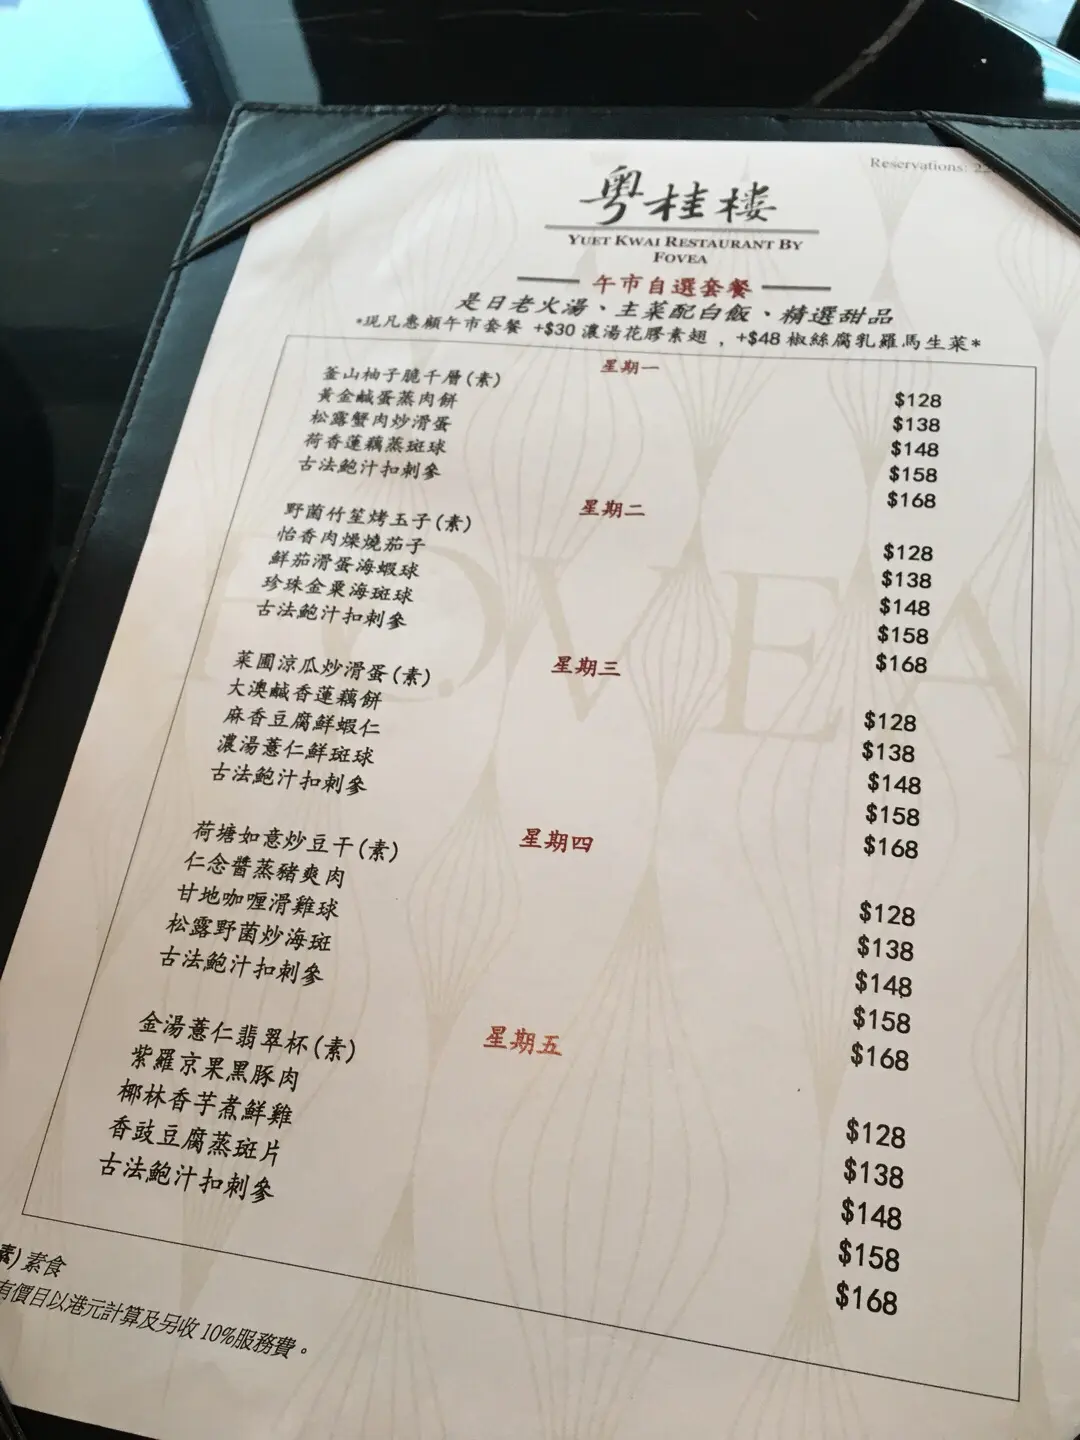 Reservations: 2
粵桂樓
YUET KWAI RESTAURANT BY
FOVEA
午市自選套餐
是日老火湯、主菜配白飯、精選甜品
*現凡惠顧午市套餐 +$30 濃湯花膠素翅 , +$48 椒絲腐乳羅馬生菜*
星期一
釜山柚子脆千層(素) $128
黃金鹹蛋蒸肉餅 $138
松露蟹肉炒滑蛋 $148
荷香蓮藕蒸斑球 $158
古法鮑汁扣刺參 $168
星期二
野菌竹笙烤玉子(素) $128
怡香肉燥燒茄子 $138
鮮茄滑蛋海蝦球 $148
珍珠金粟海斑球 $158
古法鮑汁扣刺參 $168
星期三
菜圃涼瓜炒滑蛋(素) $128
大澳鹹香蓮藕餅 $138
麻香豆腐鮮蝦仁 $148
濃湯薏仁鮮斑球 $158
古法鮑汁扣刺參 $168
星期四
荷塘如意炒豆干(素) $128
仁念醬蒸豬爽肉 $138
甘地咖喱滑雞球 $148
松露野菌炒海斑 $158
古法鮑汁扣刺參 $168
星期五
金湯薏仁翡翠杯(素) $128
紫羅京果黑豚肉 $138
椰林香芋煮鮮雞 $148
香豉豆腐蒸斑片 $158
古法鮑汁扣刺參 $168
素) 素食
有價目以港元計算及另收 10%服務費。
FOVEA